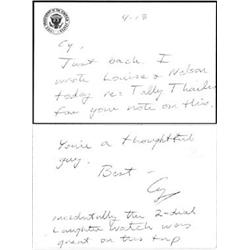 4-18
Cy,
Just back. I
wrote Louise & Nelson
today re: Tally
for your note on this.
You're a thoughtful
guy.
Best -
incidentally the 2-dial
Laughter Watch was
great on this trip